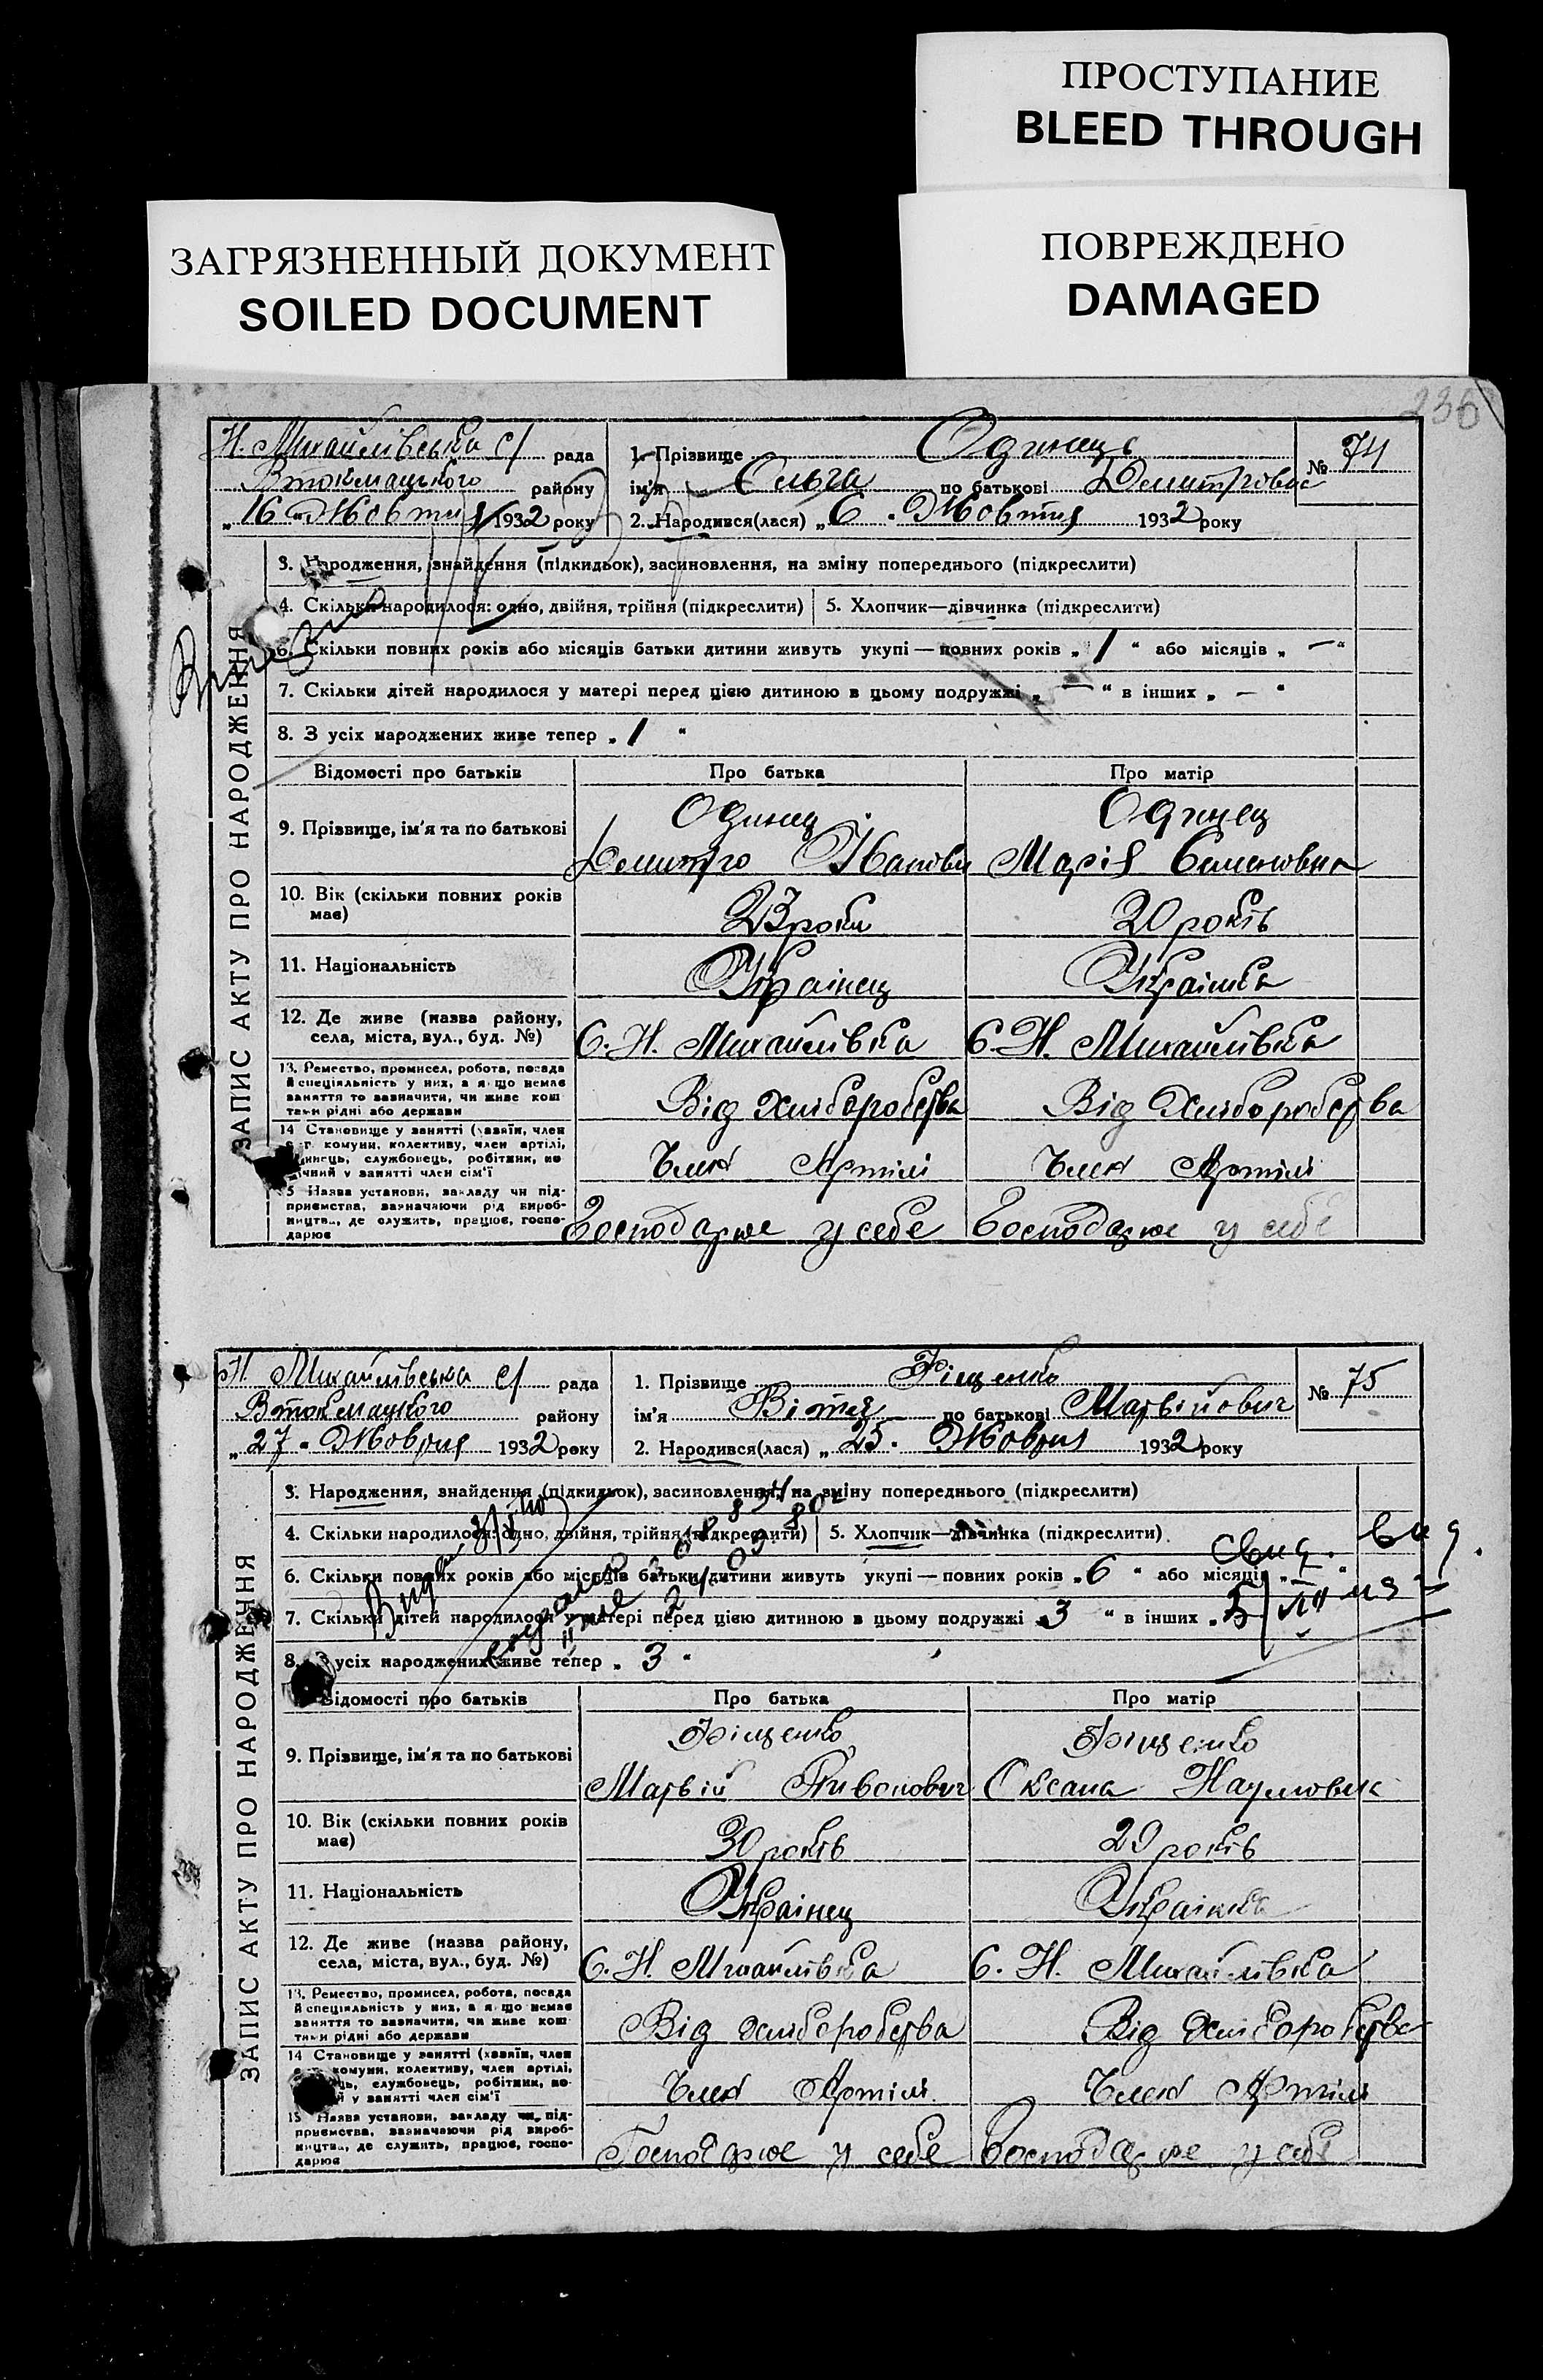 ПРОСТУПАНИЕ
BLEED THROUGH
ЗАГРЯЗНЕННЫЙ ДОКУМЕНТ
SOILED DOCUMENT
ПОВРЕЖДЕНО
DAMAGED
236
Н. Михайлівська с/ рада
Втокмацького району
„16" Жовтня 1932 року
1. Прізвище Одинець
ім'я Ольга по батькові Демитровна
2. Народився(лася) „6" Жовтня 1932 року
№ 74
ЗАПИС АКТУ ПРО НАРОДЖЕННЯ
3. Народження, знайдення (підкидьок), засиновлення, на зміну попереднього (підкреслити)
4. Скільки народилося: одно, двійня, трійня (підкреслити) 5. Хлопчик—дівчинка (підкреслити)
6. Скільки повних років або місяців батьки дитини живуть укупі — повних років „1" або місяців „—"
7. Скільки дітей народилося у матері перед цією дитиною в цьому подружжі „—" в інших „—"
8. З усіх народжених живе тепер „1"
Відомості про батьків Про батька Про матір
9. Прізвище, ім'я та по батькові
Одинец Демитро Иванови
Одинец Марія Семеновна
10. Вік (скільки повних років має) 23 роки 20 років
11. Національність Українец Українка
12. Де живе (назва району, села, міста, вул., буд. №) С. Н. Михайлівка С. Н. Михайлівка
13. Ремество, промисел, робота, посада й спеціяльність у них, а якщо немає заняття то зазначити, чи живе коштами рідні або держави
Від хліборобства Від хліборобства
14 Становище у занятті (хазяїн, член с.-г. комуни, колективу, член артілі, службовець, робітник, у занятті член сім'ї
Член Артілі Член Артілі
15 Назва установи, закладу чи підприємства, зазначаючи рід виробництва, де служить, працює, господарює
Господарює у себе Господарює у себе
Н. Михайлівська с/ рада
Втокмацького району
„27" Жовтня 1932 року
1. Прізвище Фіщенко
ім'я Вітя по батькові Матвійович
2. Народився(лася) „25" Жовтня 1932 року
№ 75
ЗАПИС АКТУ ПРО НАРОДЖЕННЯ
3. Народження, знайдення (підкидьок), засиновлення, на зміну попереднього (підкреслити)
4. Скільки народилося: одно, двійня, трійня (підкреслити) 5. Хлопчик—дівчинка (підкреслити)
6. Скільки повних років або місяців батьки дитини живуть укупі — повних років „6" або місяців
7. Скільки дітей народилося у матері перед цією дитиною в цьому подружжі „3" в інших
8. З усіх народжених живе тепер „3"
Відомості про батьків Про батька Про матір
9. Прізвище, ім'я та по батькові
Фіщенко Матвій
Фіщенко Оксана Наумовна
10. Вік (скільки повних років має) 30 років 29 років
11. Національність Українец Українка
12. Де живе (назва району, села, міста, вул., буд. №) С. Н. Михайлівка С. Н. Михайлівка
13. Ремество, промисел, робота, посада й спеціяльність у них, а якщо немає заняття то зазначити, чи живе коштами рідні або держави
Від хліборобства Від хліборобства
14 Становище у занятті (хазяїн, член комуни, колективу, член артілі, службовець, робітник, у занятті член сім'ї
Член Артілі Член Артілі
15 Назва установи, закладу чи підприємства, зазначаючи рід виробництва, де служить, працює, господарює
Господарює у себе Господарює у себе